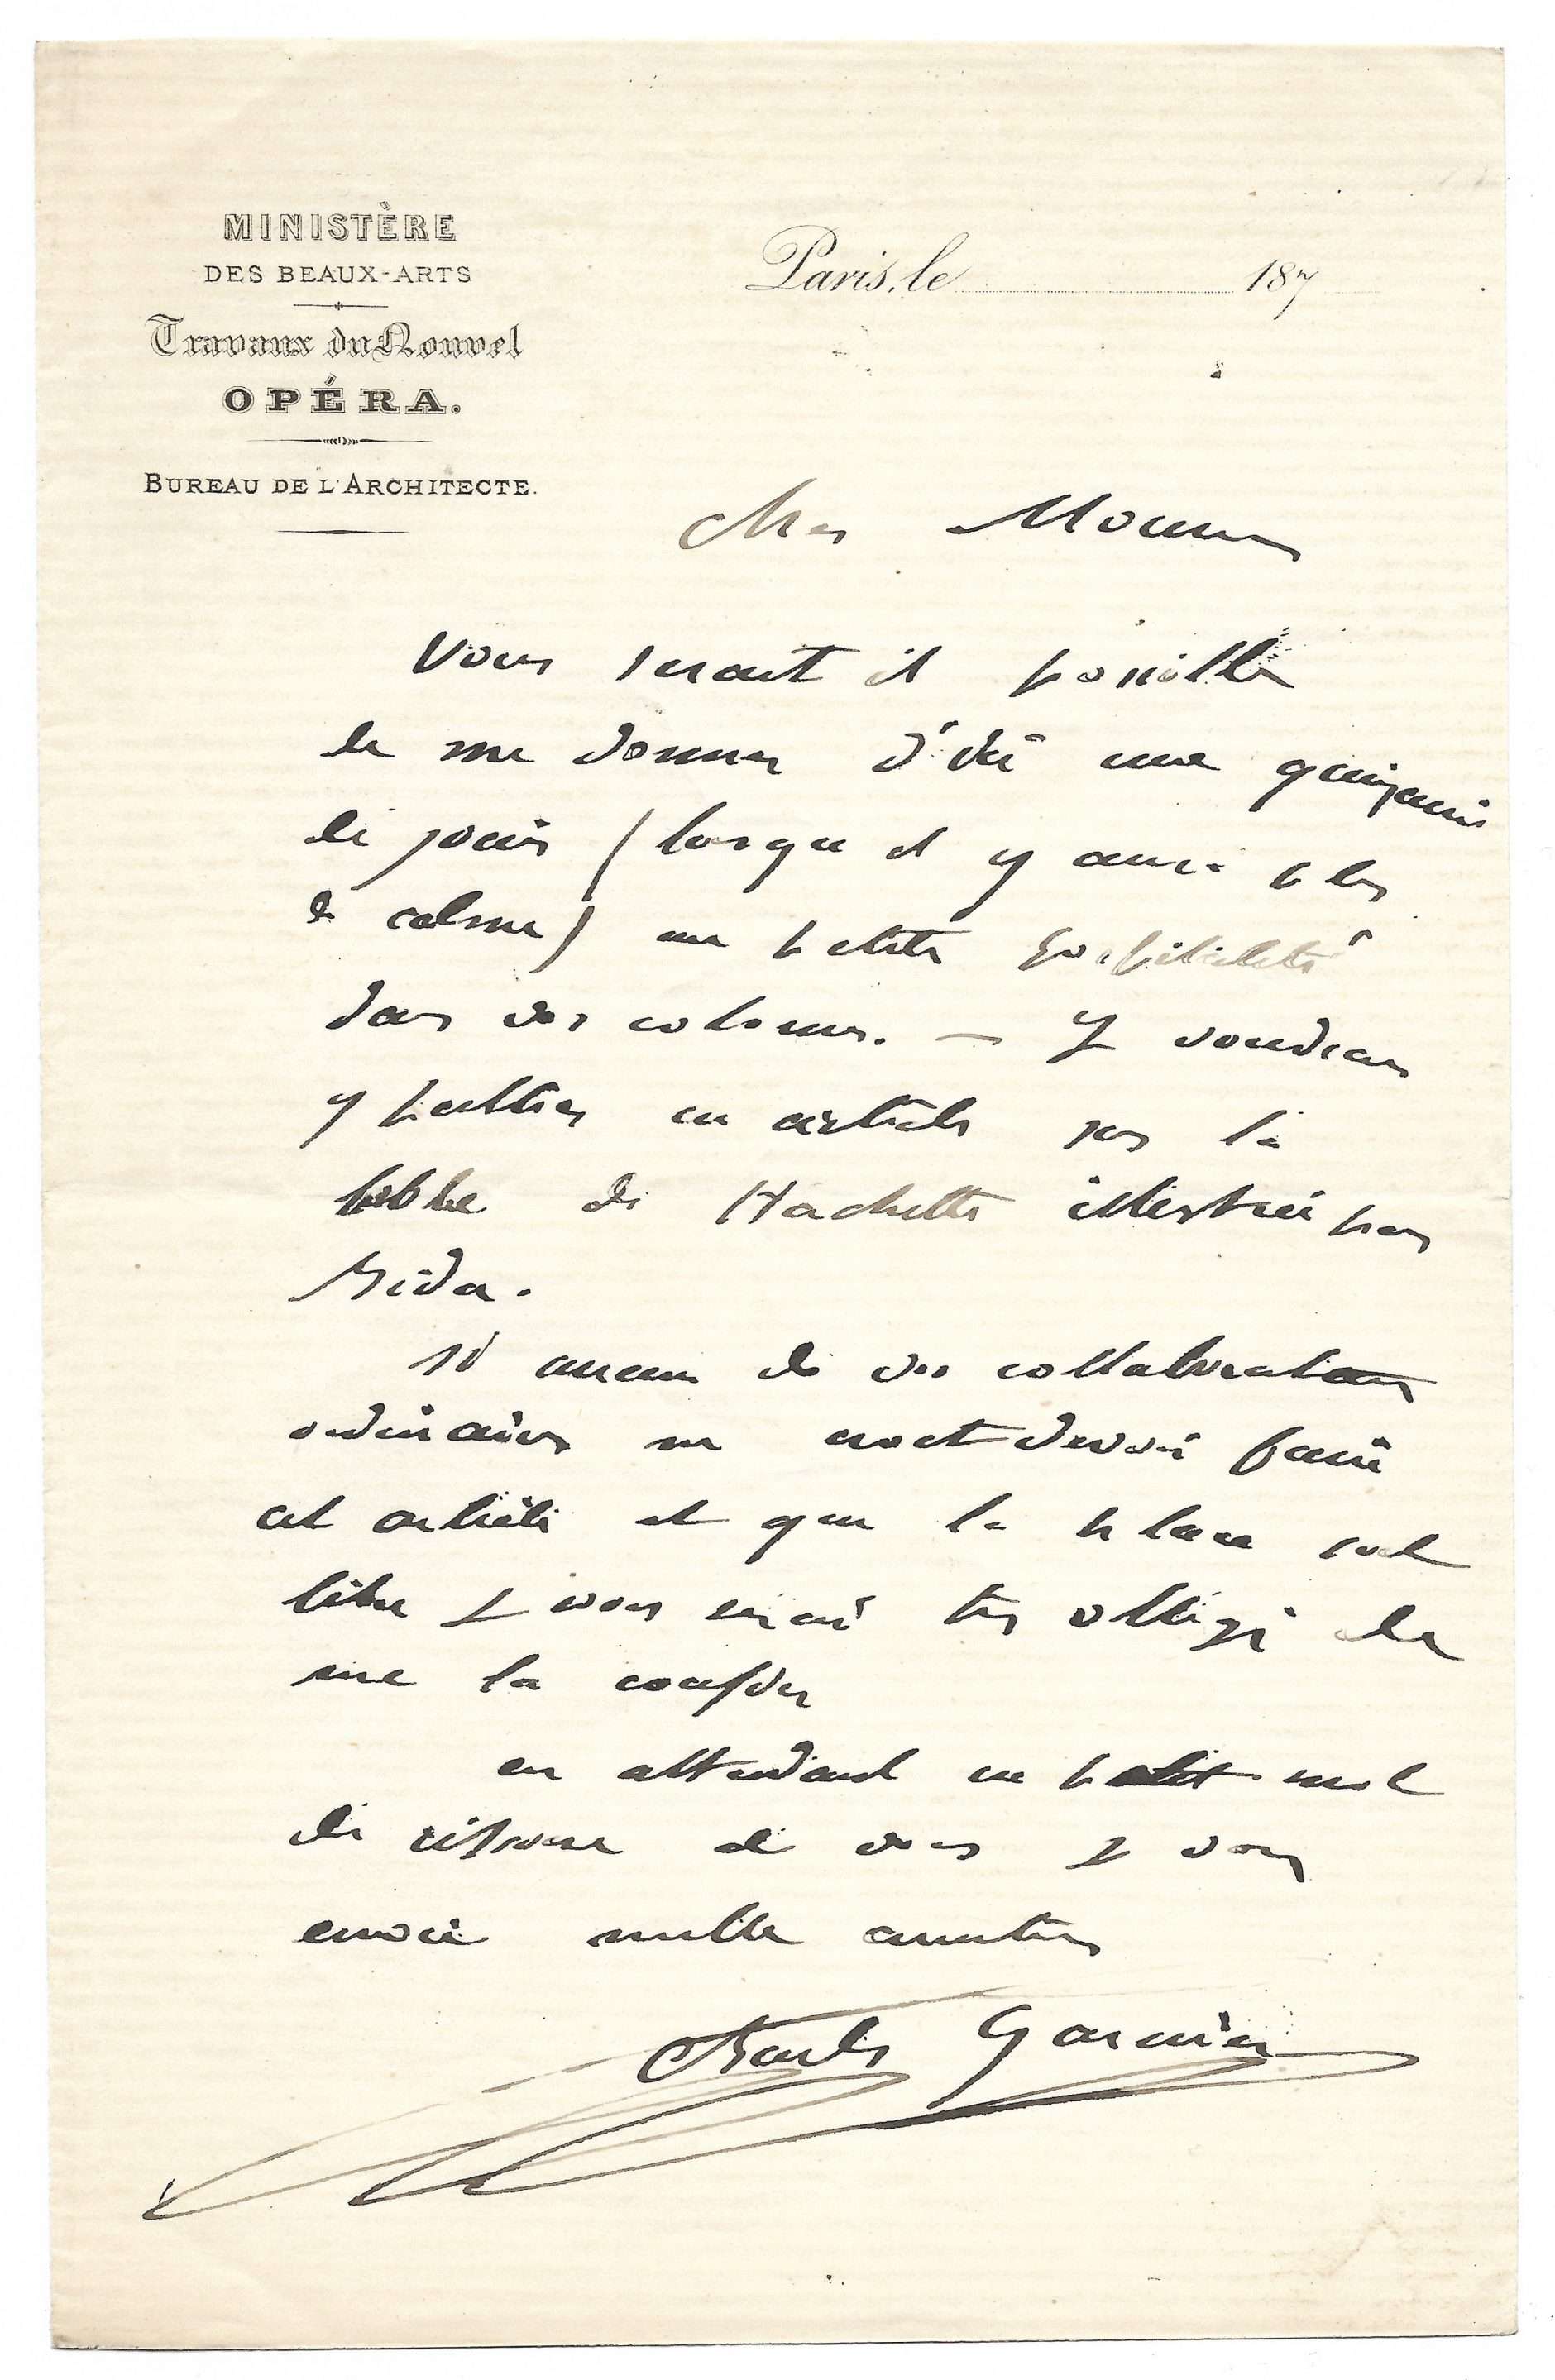 MINISTÈRE
DES BEAUX-ARTS
Travaux du Nouvel
OPÉRA.
BUREAU DE L'ARCHITECTE.
Paris, le 187
Cher
Vous serait il possible
de me donner d'ici une quinzaine
de jours (lorsque il y aura plus
de calme) une petite hospitalité
dans vos colonnes. — Je voudrais
y publier un article sur la
bible de Hachette illustrée par
Bida.
si aucun de vos collaborateurs
ordinaires ne croit devoir faire
cet article et que la place soit
libre je vous serai très obligé de
me la confier
en attendant un petit mot
de réponse de vous je vous
envoie mille amitiés
Charles Garnier